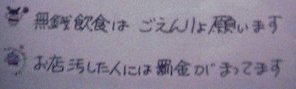 無銭飲食は ごえんりょ願います
お店汚した人には罰金がまってます